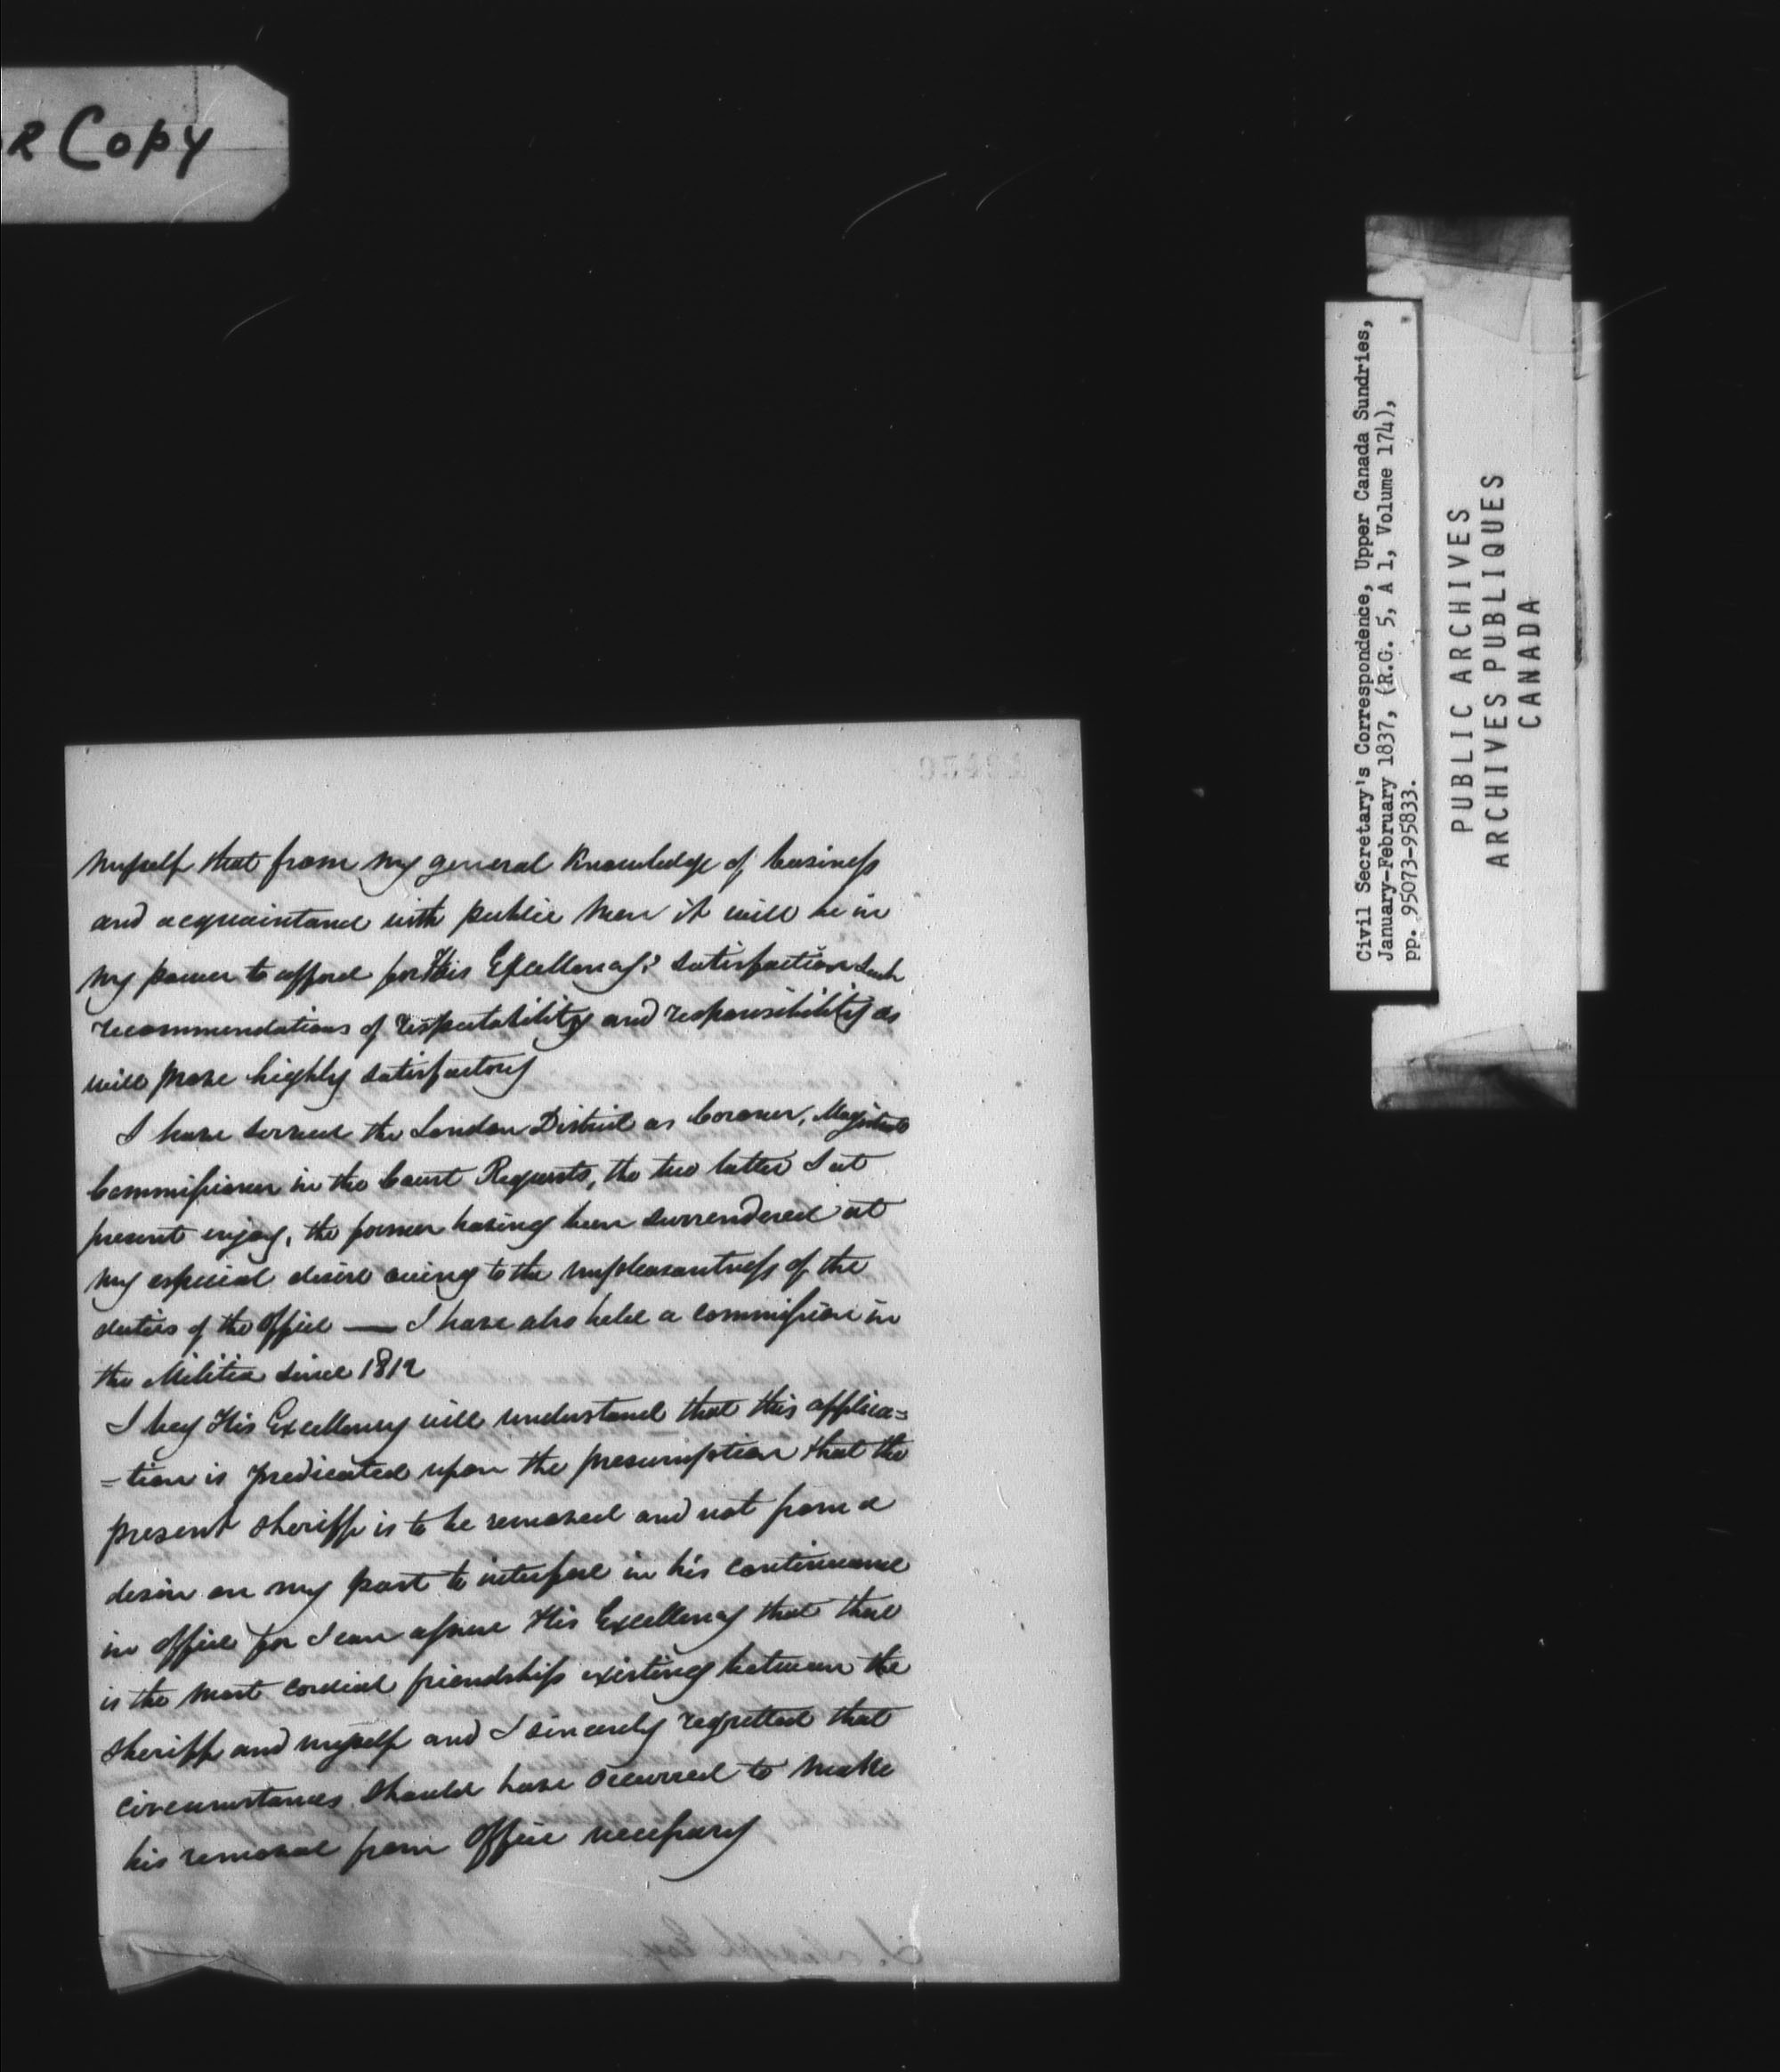 R Copy
Civil Secretary's Correspondence, Upper Canada Sundries,
January-February 1837, (R.G. 5, A 1, Volume 174),
pp. 95073-95833.
PUBLIC ARCHIVES
ARCHIVES PUBLIQUES
CANADA
myself that from my general knowledge of business
and acquaintance with public men it will be in
my power to afford for His Excellency's satisfaction such
recommendations of respectability and responsibility as
will prove highly satisfactory
I have served the London District as Coroner, Magistrate
Commissioner in the Court Requests, the two latter I at
present enjoy, the former having been surrendered at
my especial desire owing to the unpleasantness of the
duties of the Office — I have also held a commission in
the Militia since 1812
I beg His Excellency will understand that this applica=
=tion is predicated upon the presumption that the
present sheriff is to be removed and not from a
desire on my part to interfere in his continuance
in office for I can assure His Excellency that there
is the most cordial friendship existing between the
sheriff and myself and I sincerely regretted that
circumstances should have occurred to make
his removal from Office necessary